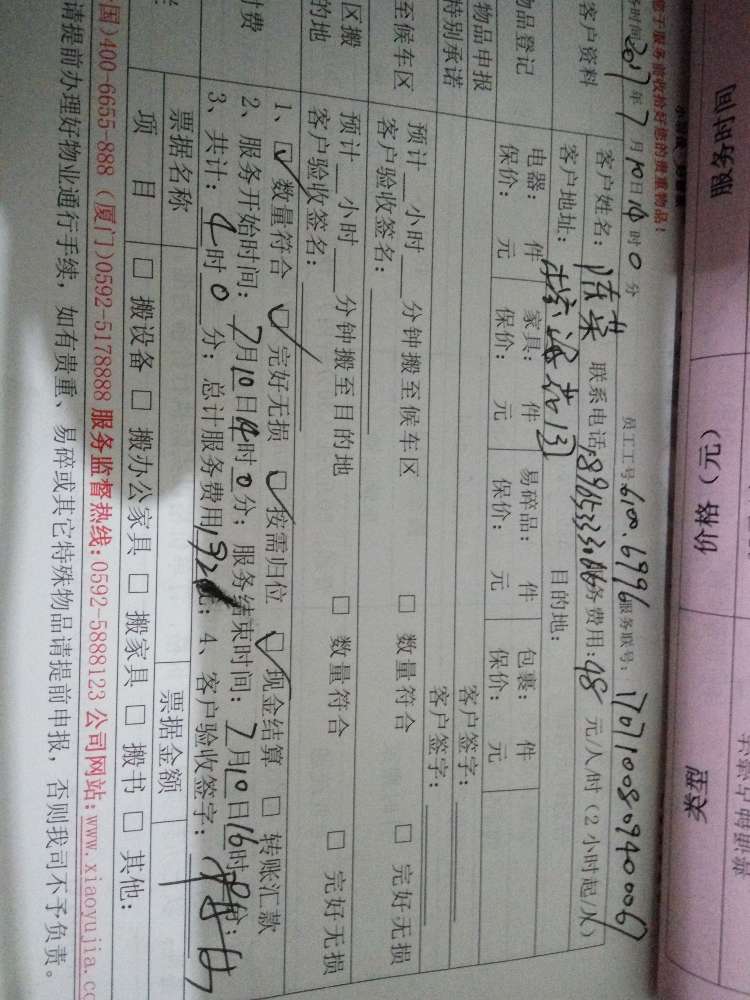 服务时间
价格（元）
类型
您于服务前收拾好您的贵重物品！
务时间2017年7月10日14时0分 员工工号:6100.6996 服务联号:
客户资料 客户姓名: 联系电话 务费用:48元/人/时（2小时起/人）
客户地址: 目的地:
物品登记 电器: 件 家具: 件 易碎品: 件 包裹: 件
保价: 元 保价: 元 保价: 元 保价: 元
物品申报 客户签字:
特别承诺 客户签字:
至候车区 预计__小时__分钟搬至候车区 □ 数量符合 □ 完好无损
客户验收签名:
区搬 预计__小时__分钟搬至目的地 □ 数量符合 □ 完好无损
的地 客户验收签名:
1、☑ 数量符合 ☑ 完好无损 ☑ 按需归位 ☑ 现金结算 □ 转账汇款
付费 2、服务开始时间: 7月10日14时0分; 服务结束时间: 7月10日16时
3、共计: 4时0分; 总计服务费用192元; 4、客户验收签字:
票据名称 票据金额
项 目 □ 搬设备 □ 搬办公家具 □ 搬家具 □ 搬书 □ 其他:
国)400-6655-888 (厦门)0592-5178888 服务监督热线:0592-5888123 公司网站:www.xiaoyujia.co
请提前办理好物业通行手续，如有贵重、易碎或其它特殊物品请提前申报，否则我司不予负责。